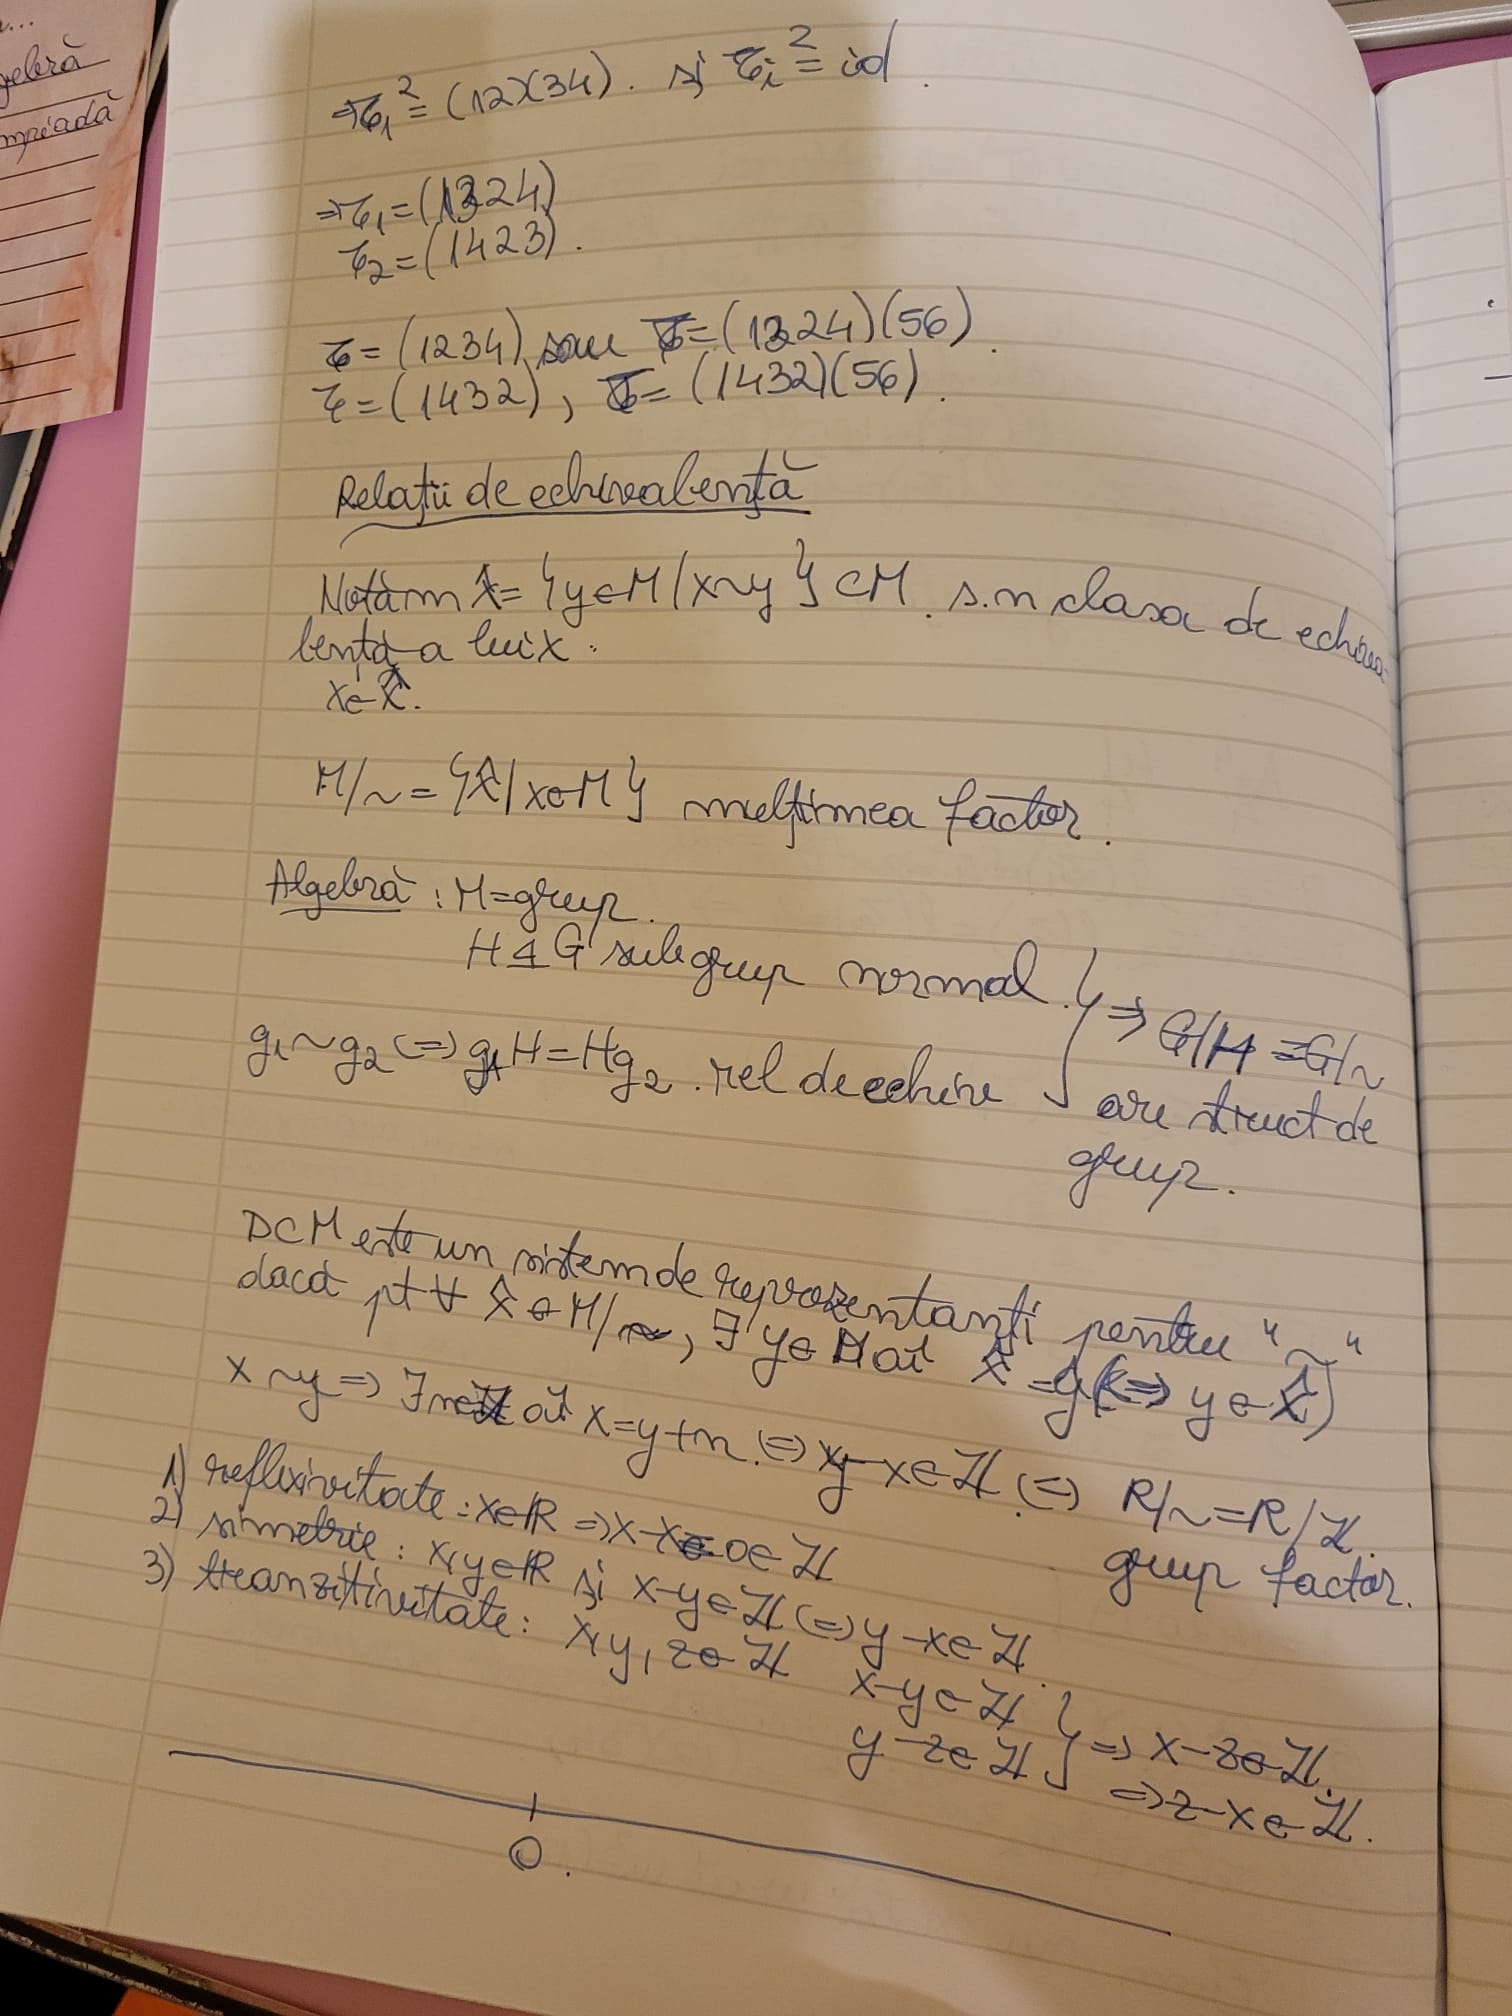 gebră
mpiadă
⇒τ₁² = (12)(34). și τᵢ² = id.
⇒τ₁ = (1324)
τ₂ = (1423).
τ = (1234) sau τ = (1324)(56).
τ = (1432), τ = (1432)(56).
Relații de echivalență
Notăm x̂ = {y∈M | x~y} ⊂ M. s.n clasa de echiva
lență a lui x.
x∈x̂.
M/~ = {x̂ | x∈M} mulțimea factor.
Algebră: M=grup.
H⊴G subgrup normal. } ⇒ G/H = G/~
g₁~g₂ ⇔ g₁H = Hg₂. rel de echiv
are struct de
grup.
D⊂M este un sistem de reprezentanți pentru "~"
dacă pt ∀ x̂ ∈ M/~, ∃ y∈ aî x̂ = ŷ (⇔ y∈x̂)
x~y ⇒ ∃n∈ℤ aî x=y+n. ⇔ y-x∈ℤ. ⇔ R/~=R/ℤ.
grup factor.
1) reflexivitate: x∈ℝ ⇒ x-x=0∈ℤ
2) simetrie: x,y∈ℝ și x-y∈ℤ ⇔ y-x∈ℤ.
3) tranzitivitate: x,y,z∈ℤ x-y∈ℤ
y-z∈ℤ } ⇒ x-z∈ℤ.
⇒ z-x∈ℤ.
0.